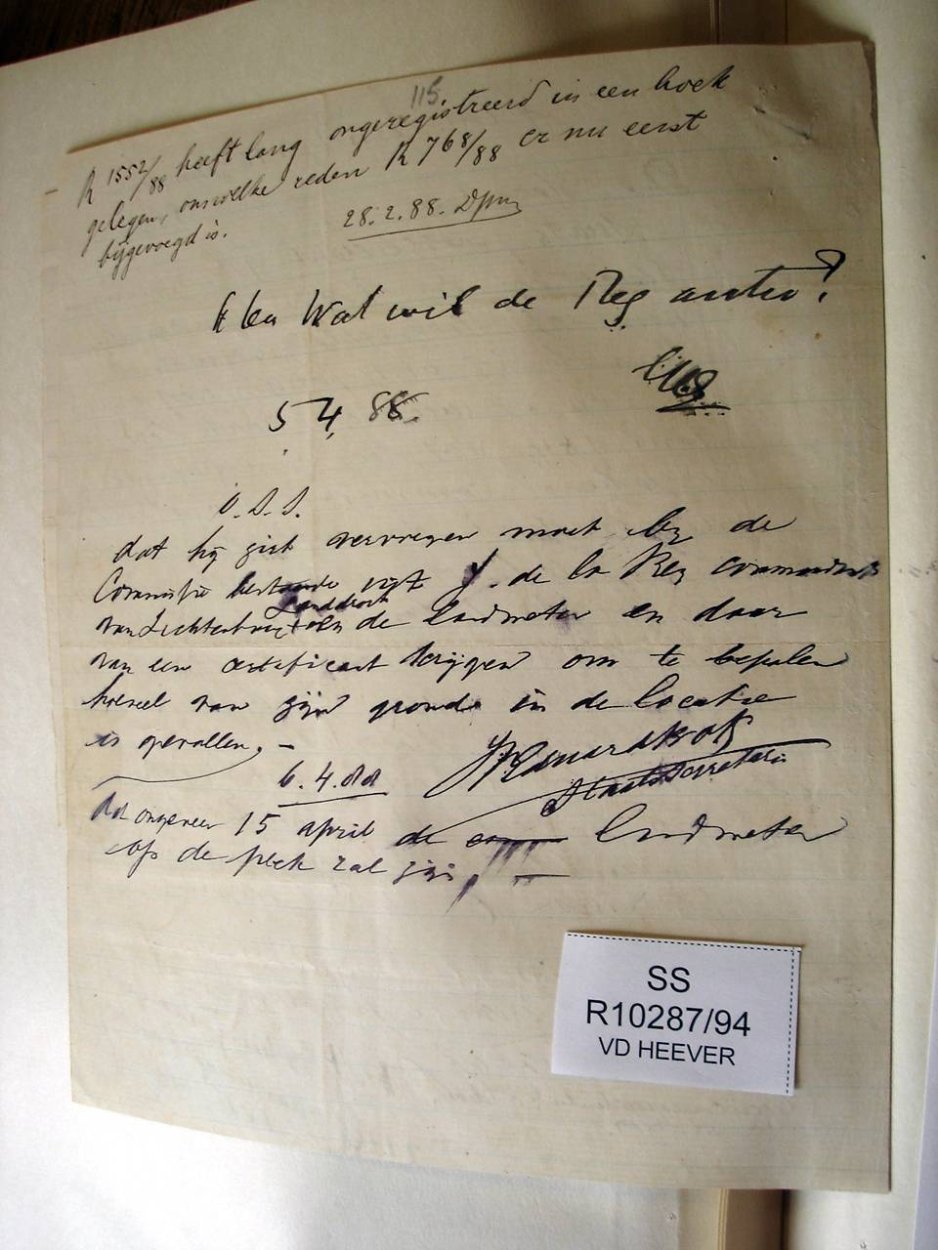 115
R 1552/88 heeft lang ongeregistreerd in een hoek
gelegen, om welke reden R 768/88 er nu eerst
bijgevoegd is.
28.2.88.
Wat wil de Reg
5 4 88.
dat hy zich vervoegen moet by de
Commissie bestaande uit J. de la Rey commandant
Landdrost
van Lichtenburg en de landmeter en daar
van een certificaat krijgen om te bepalen
hoeveel van zijn grond in de locatie
is gevallen. -
6.4.88
Staatssecretaris
dat ongeveer 15 april de landmeter
op de plek zal zijn. -
SS
R10287/94
VD HEEVER